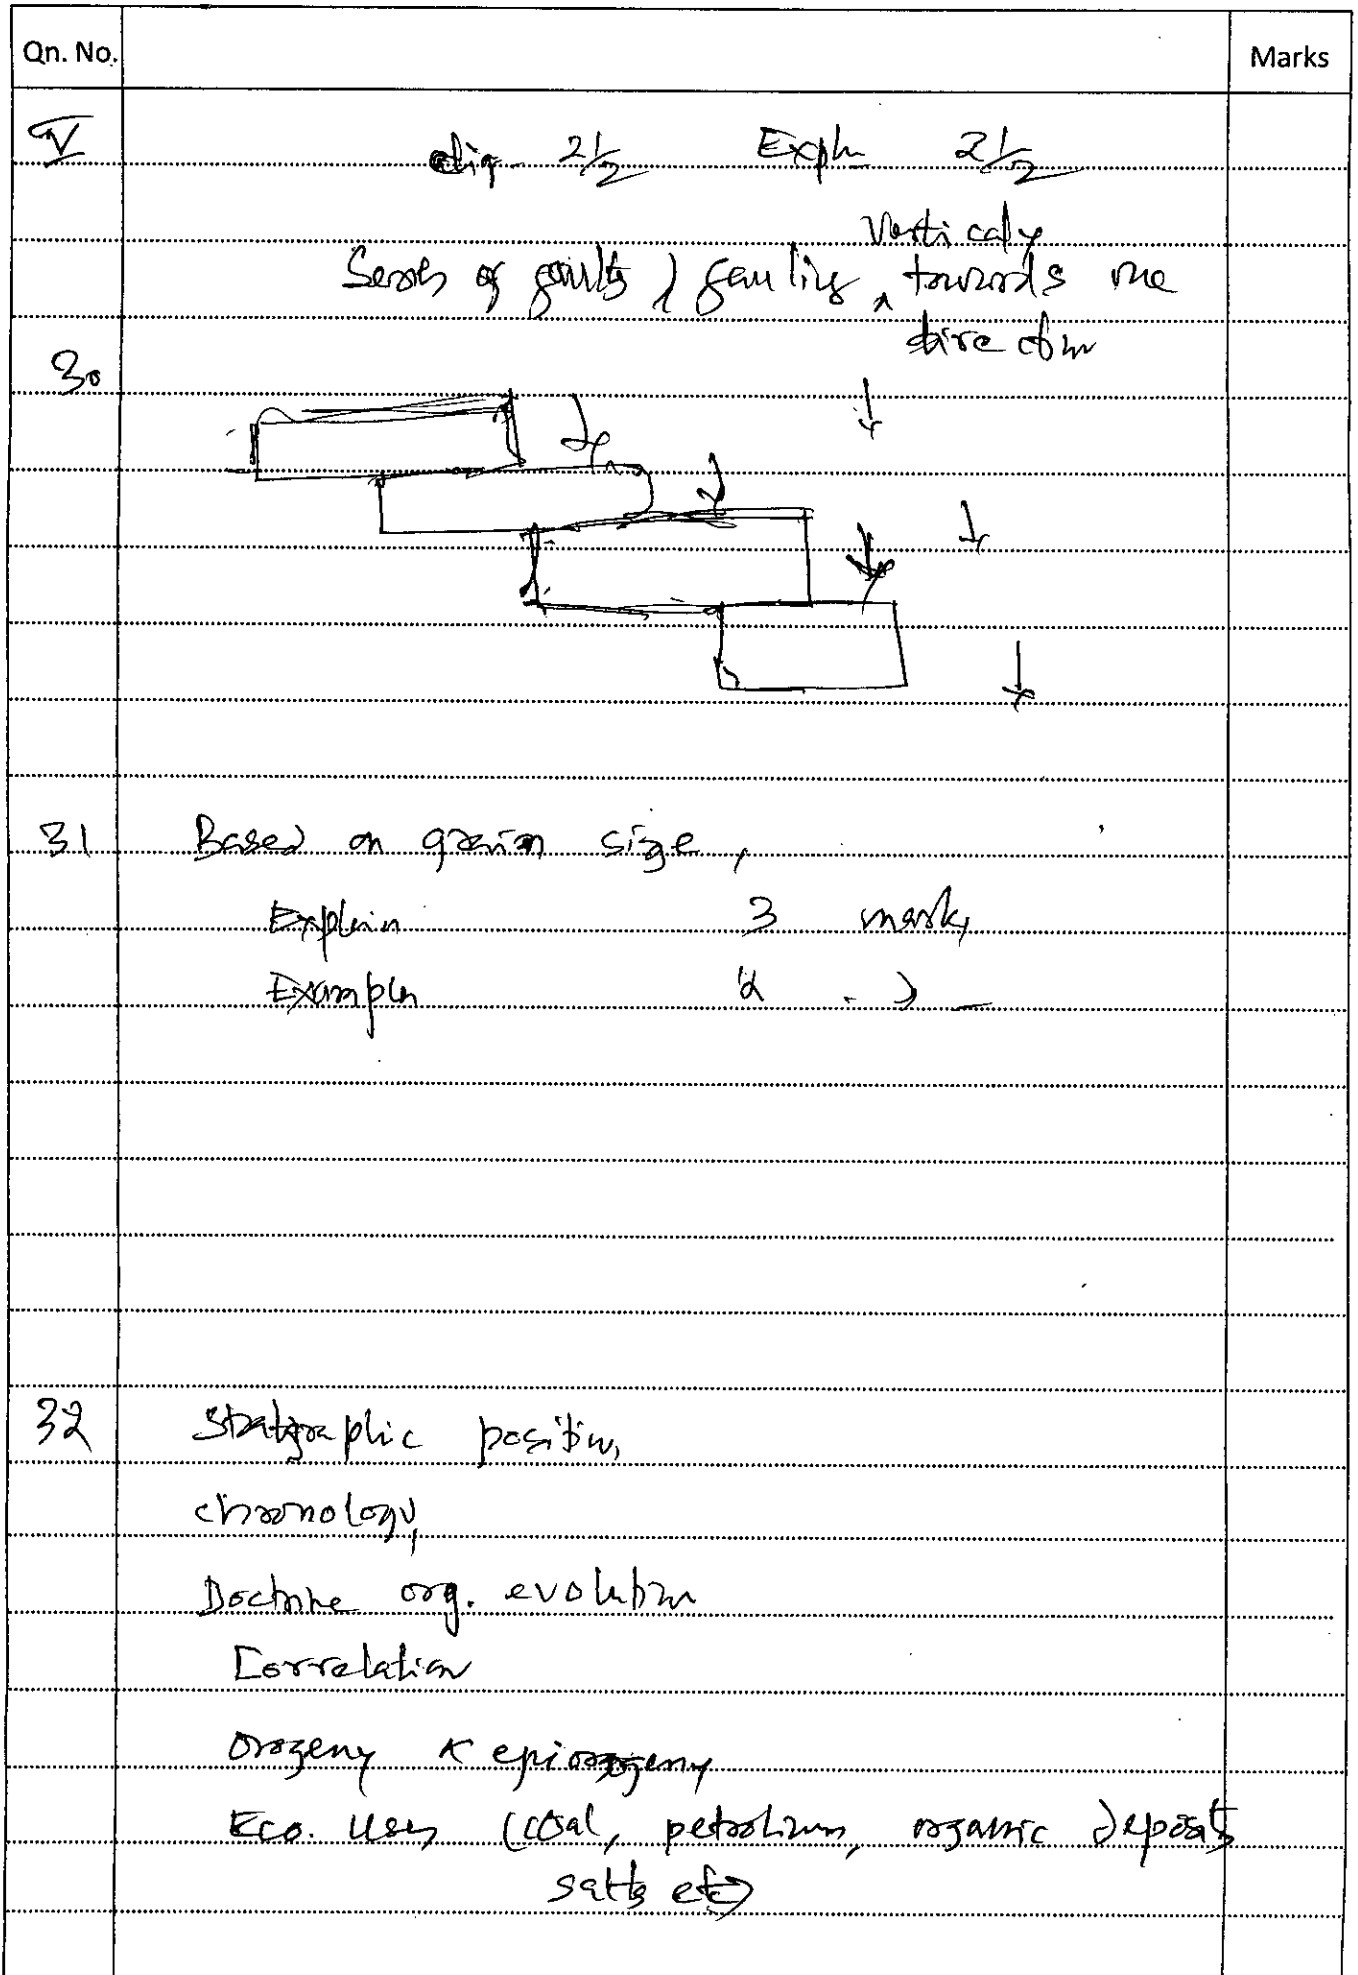 Qn. No. Marks
V
dig - 2 1/2 Expln 2 1/2
Vertically
Series of faults / faulting ^ towards one
direction
30
31 Based on grain size,
Explain 3 marks
Example 2 . ) —
32 Statgraphic position,
chronology,
Doctrine org. evolution
Correlation
Orogeny & epiorogeny
Eco. Uses (coal, petrolium, organic deposits
salts etc)